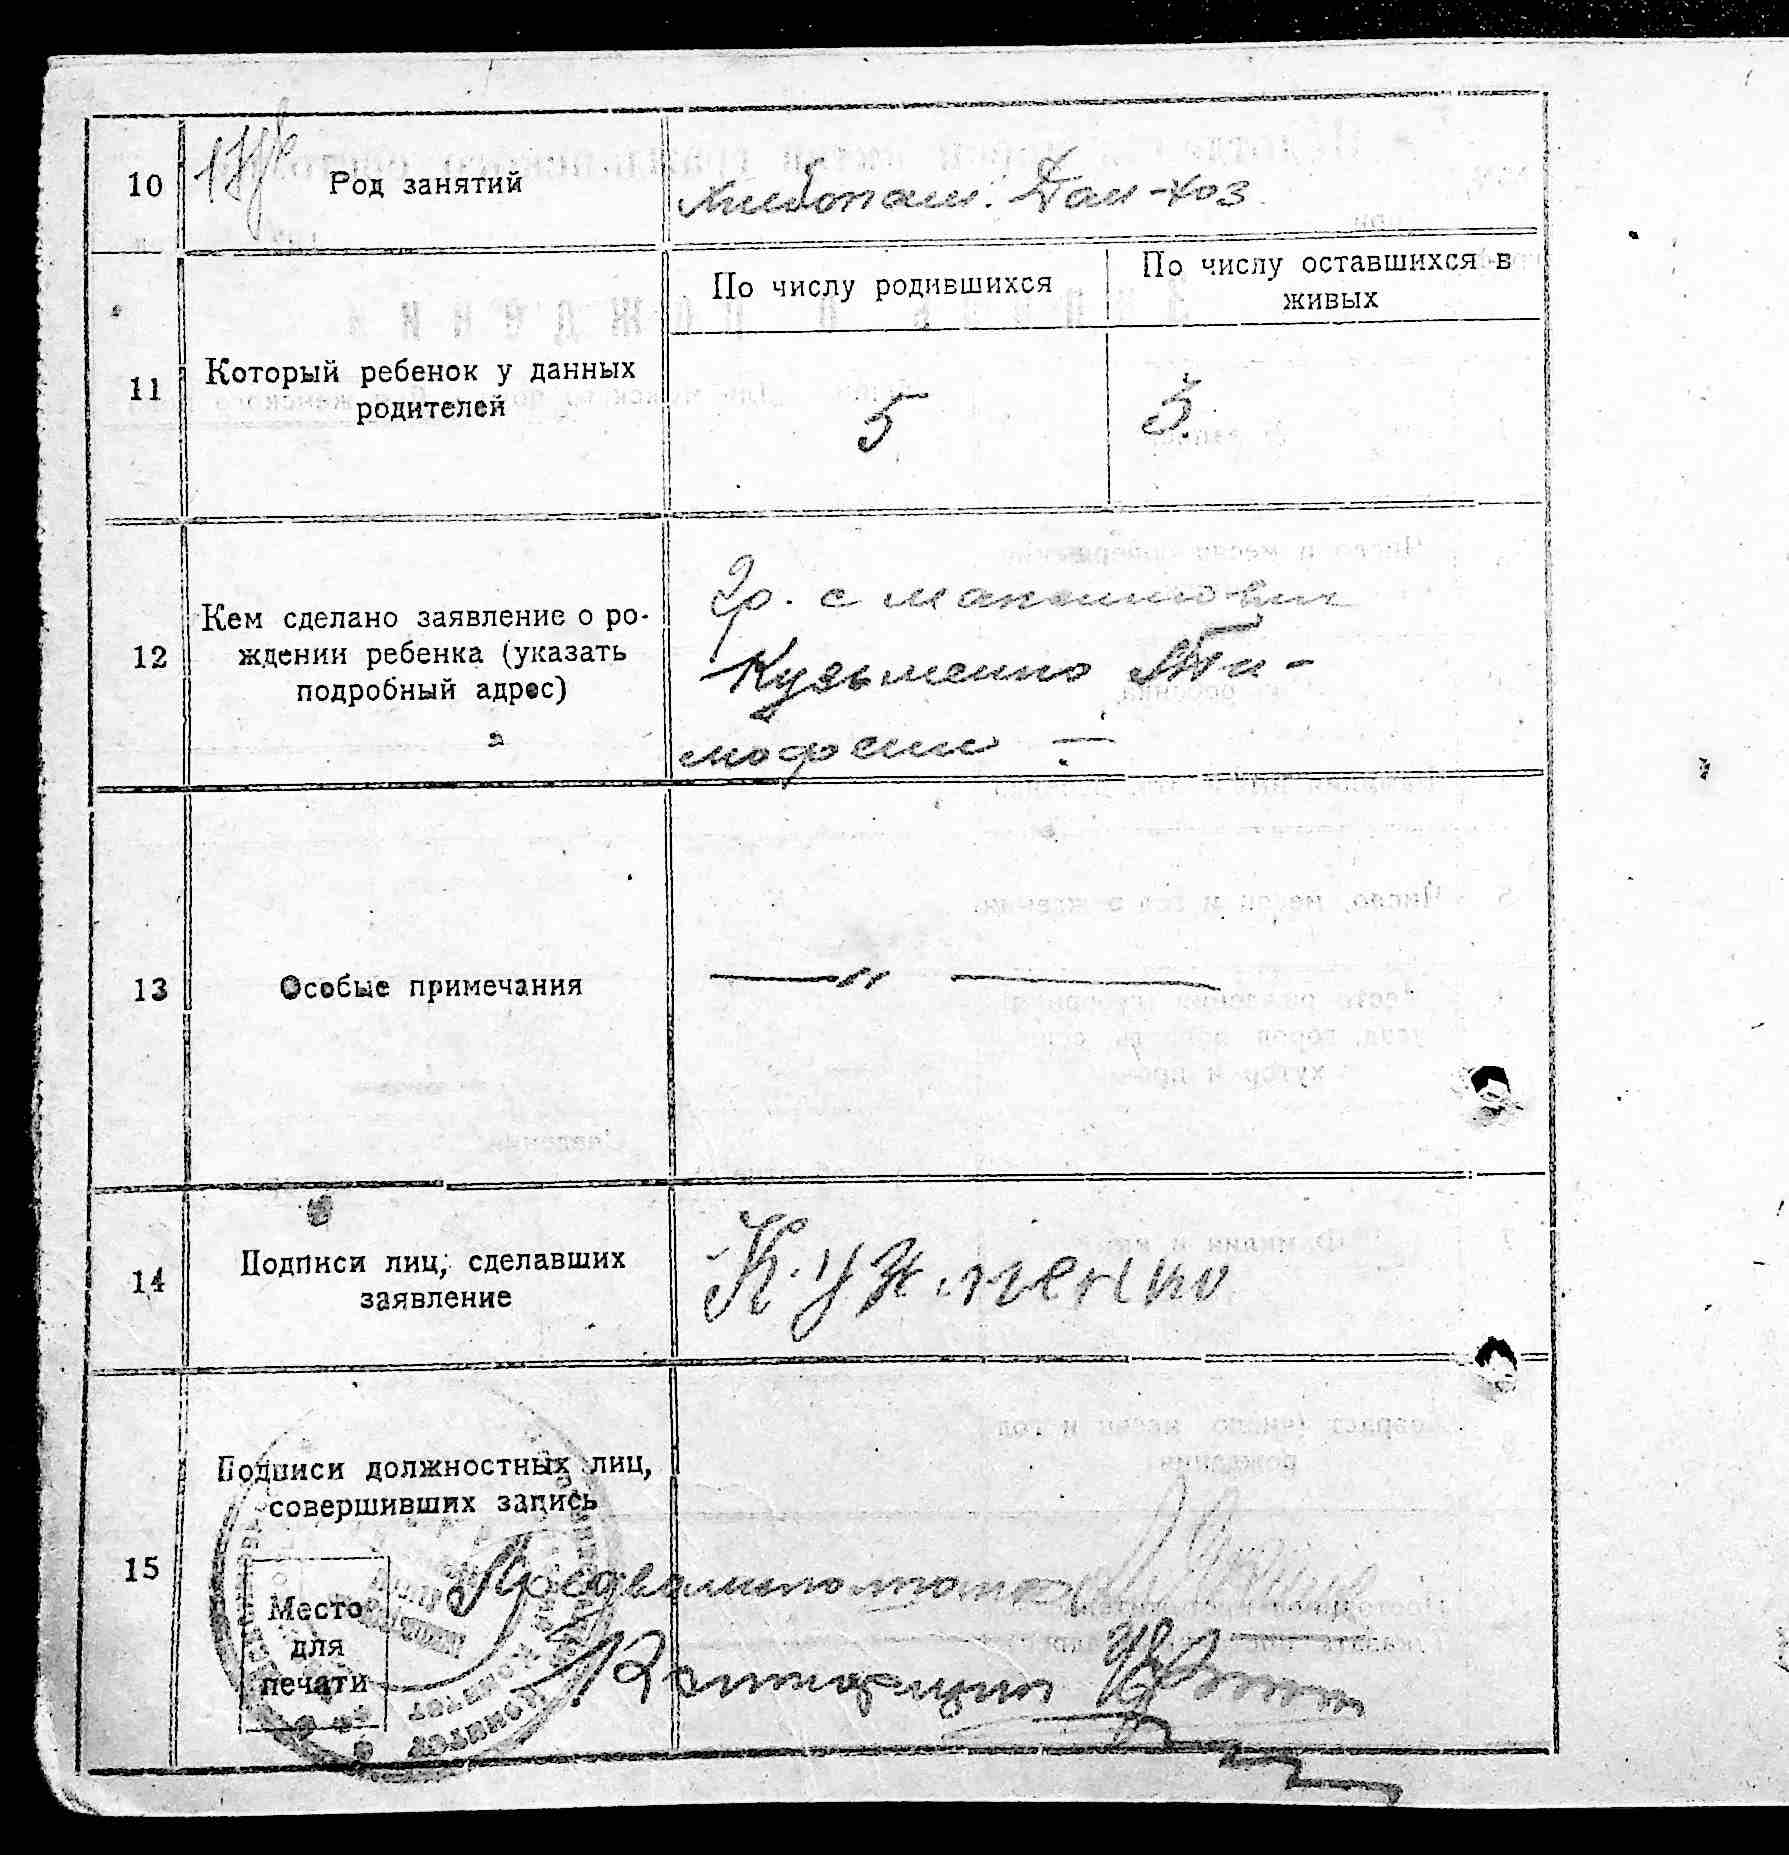 10
Род занятий
Хлебопаш. Дом-хоз
11
Который ребенок у данных
родителей
По числу родившихся
По числу оставшихся в
живых
5
3.
12
Кем сделано заявление о ро-
ждении ребенка (указать
подробный адрес)
Гр. с
Кузьменко Ти-
мофеем
13
Особые примечания
— " —
14
Подписи лиц, сделавших
заявление
Кузменко
15
Подписи должностных лиц,
совершивших запись
Место
для
печати